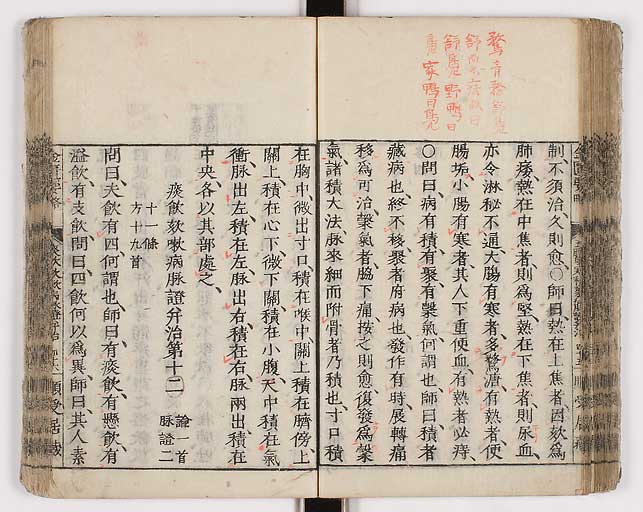 鶩音務舒鳧
野鴨曰
家鴨曰鳧
制不須治久則愈〇師曰熱在上焦者因欬為
肺痿熱在中焦者則為堅熱在下焦者則尿血
亦令淋秘不通大腸有寒者多鶩溏有熱者便
腸垢小腸有寒者其人下重便血有熱者必痔
〇問曰病有積有聚有䅽氣何謂也師曰積者
藏病也終不移聚者府病也發作有時展轉痛
移為可治䅽氣者脇下痛按之則愈復發為䅽
氣諸積大法脉來細而附骨者乃積也寸口積
在胸中微出寸口積在喉中關上積在臍傍上
關上積在心下微下關積在小腹尺中積在氣
衝脉出左積在左脉出右積在右脉兩出積在
中央各以其部處之
痰飲欬嗽病脉證并治第十二
論一首
脉證二
十一條
方十九首
問曰夫飲有四何謂也師曰有痰飲有懸飲有
溢飲有支飲問曰四飲何以為異師曰其人素